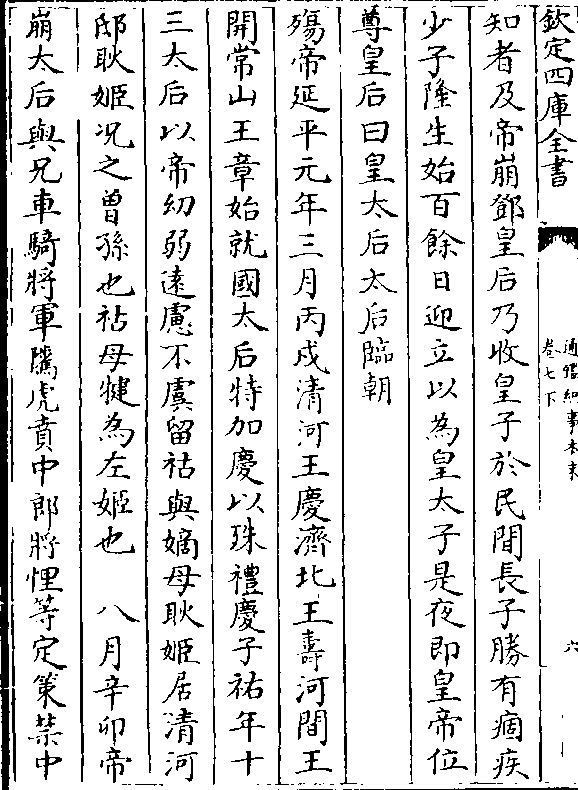 欽定四庫全書
通鑑紀事本末
卷七下
六
知者及帝崩鄧皇后乃收皇子於民間長子勝有痼疾
少子隆生始百餘日迎立以為皇太子是夜即皇帝位
尊皇后曰皇太后太后臨朝
殤帝延平元年三月丙戌清河王慶濟北王壽河間王
開常山王章始就國太后特加慶以殊禮慶子祜年十
三太后以帝幼弱遠慮不虞留祜與嫡母耿姬居清河
邸耿姬况之曾孫也祜母犍為左姬也　八月辛卯帝
崩太后與兄車騎將軍騭虎賁中郎將悝等定策禁中